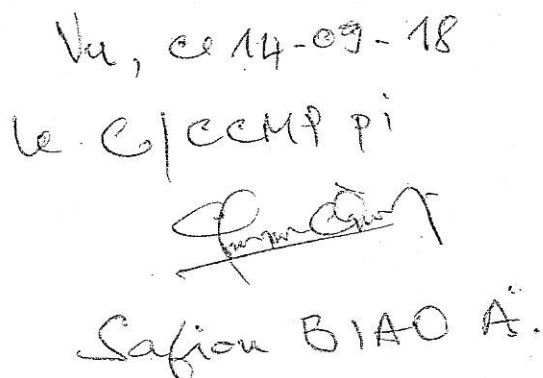 Vu, ce 14-09-18
le C/CCMP pi
Safiou BIAO A.